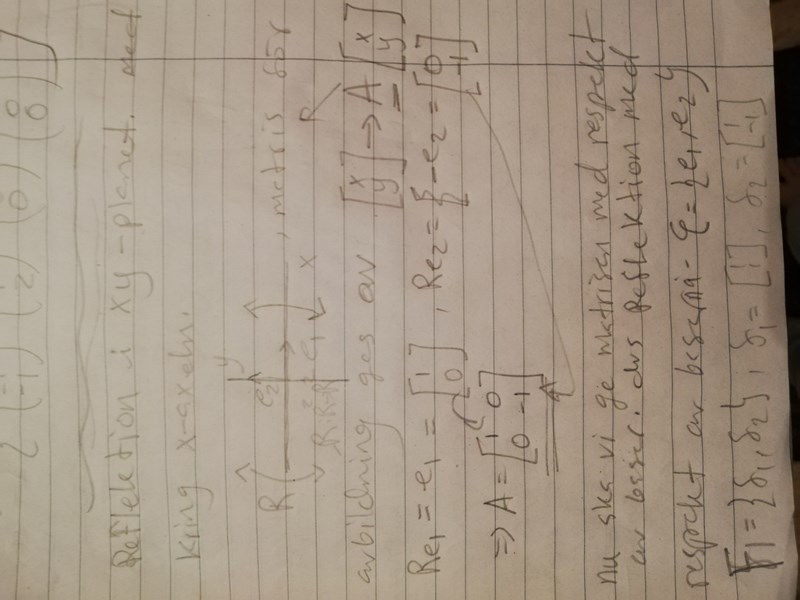 { (-1) (1 2) (0) (0 0) }
Reflektion i xy-planet. med
kring x-axeln.
y
R e2 , matris för
e1 x
R: R→R
avbildning ges av [x y] → A [x y]
R
Re1 = e1 = [1 0], Re2 = { -e2 = [0 -1]
⇒ A = [1 0
0 -1]
nu ska vi ge matrisen med respekt
av baser. dvs Reflektion med
respekt av baserna - E = {e1, e2}
F1 = {δ1, δ2}, δ1 = [1 1], δ2 = [-1 1]